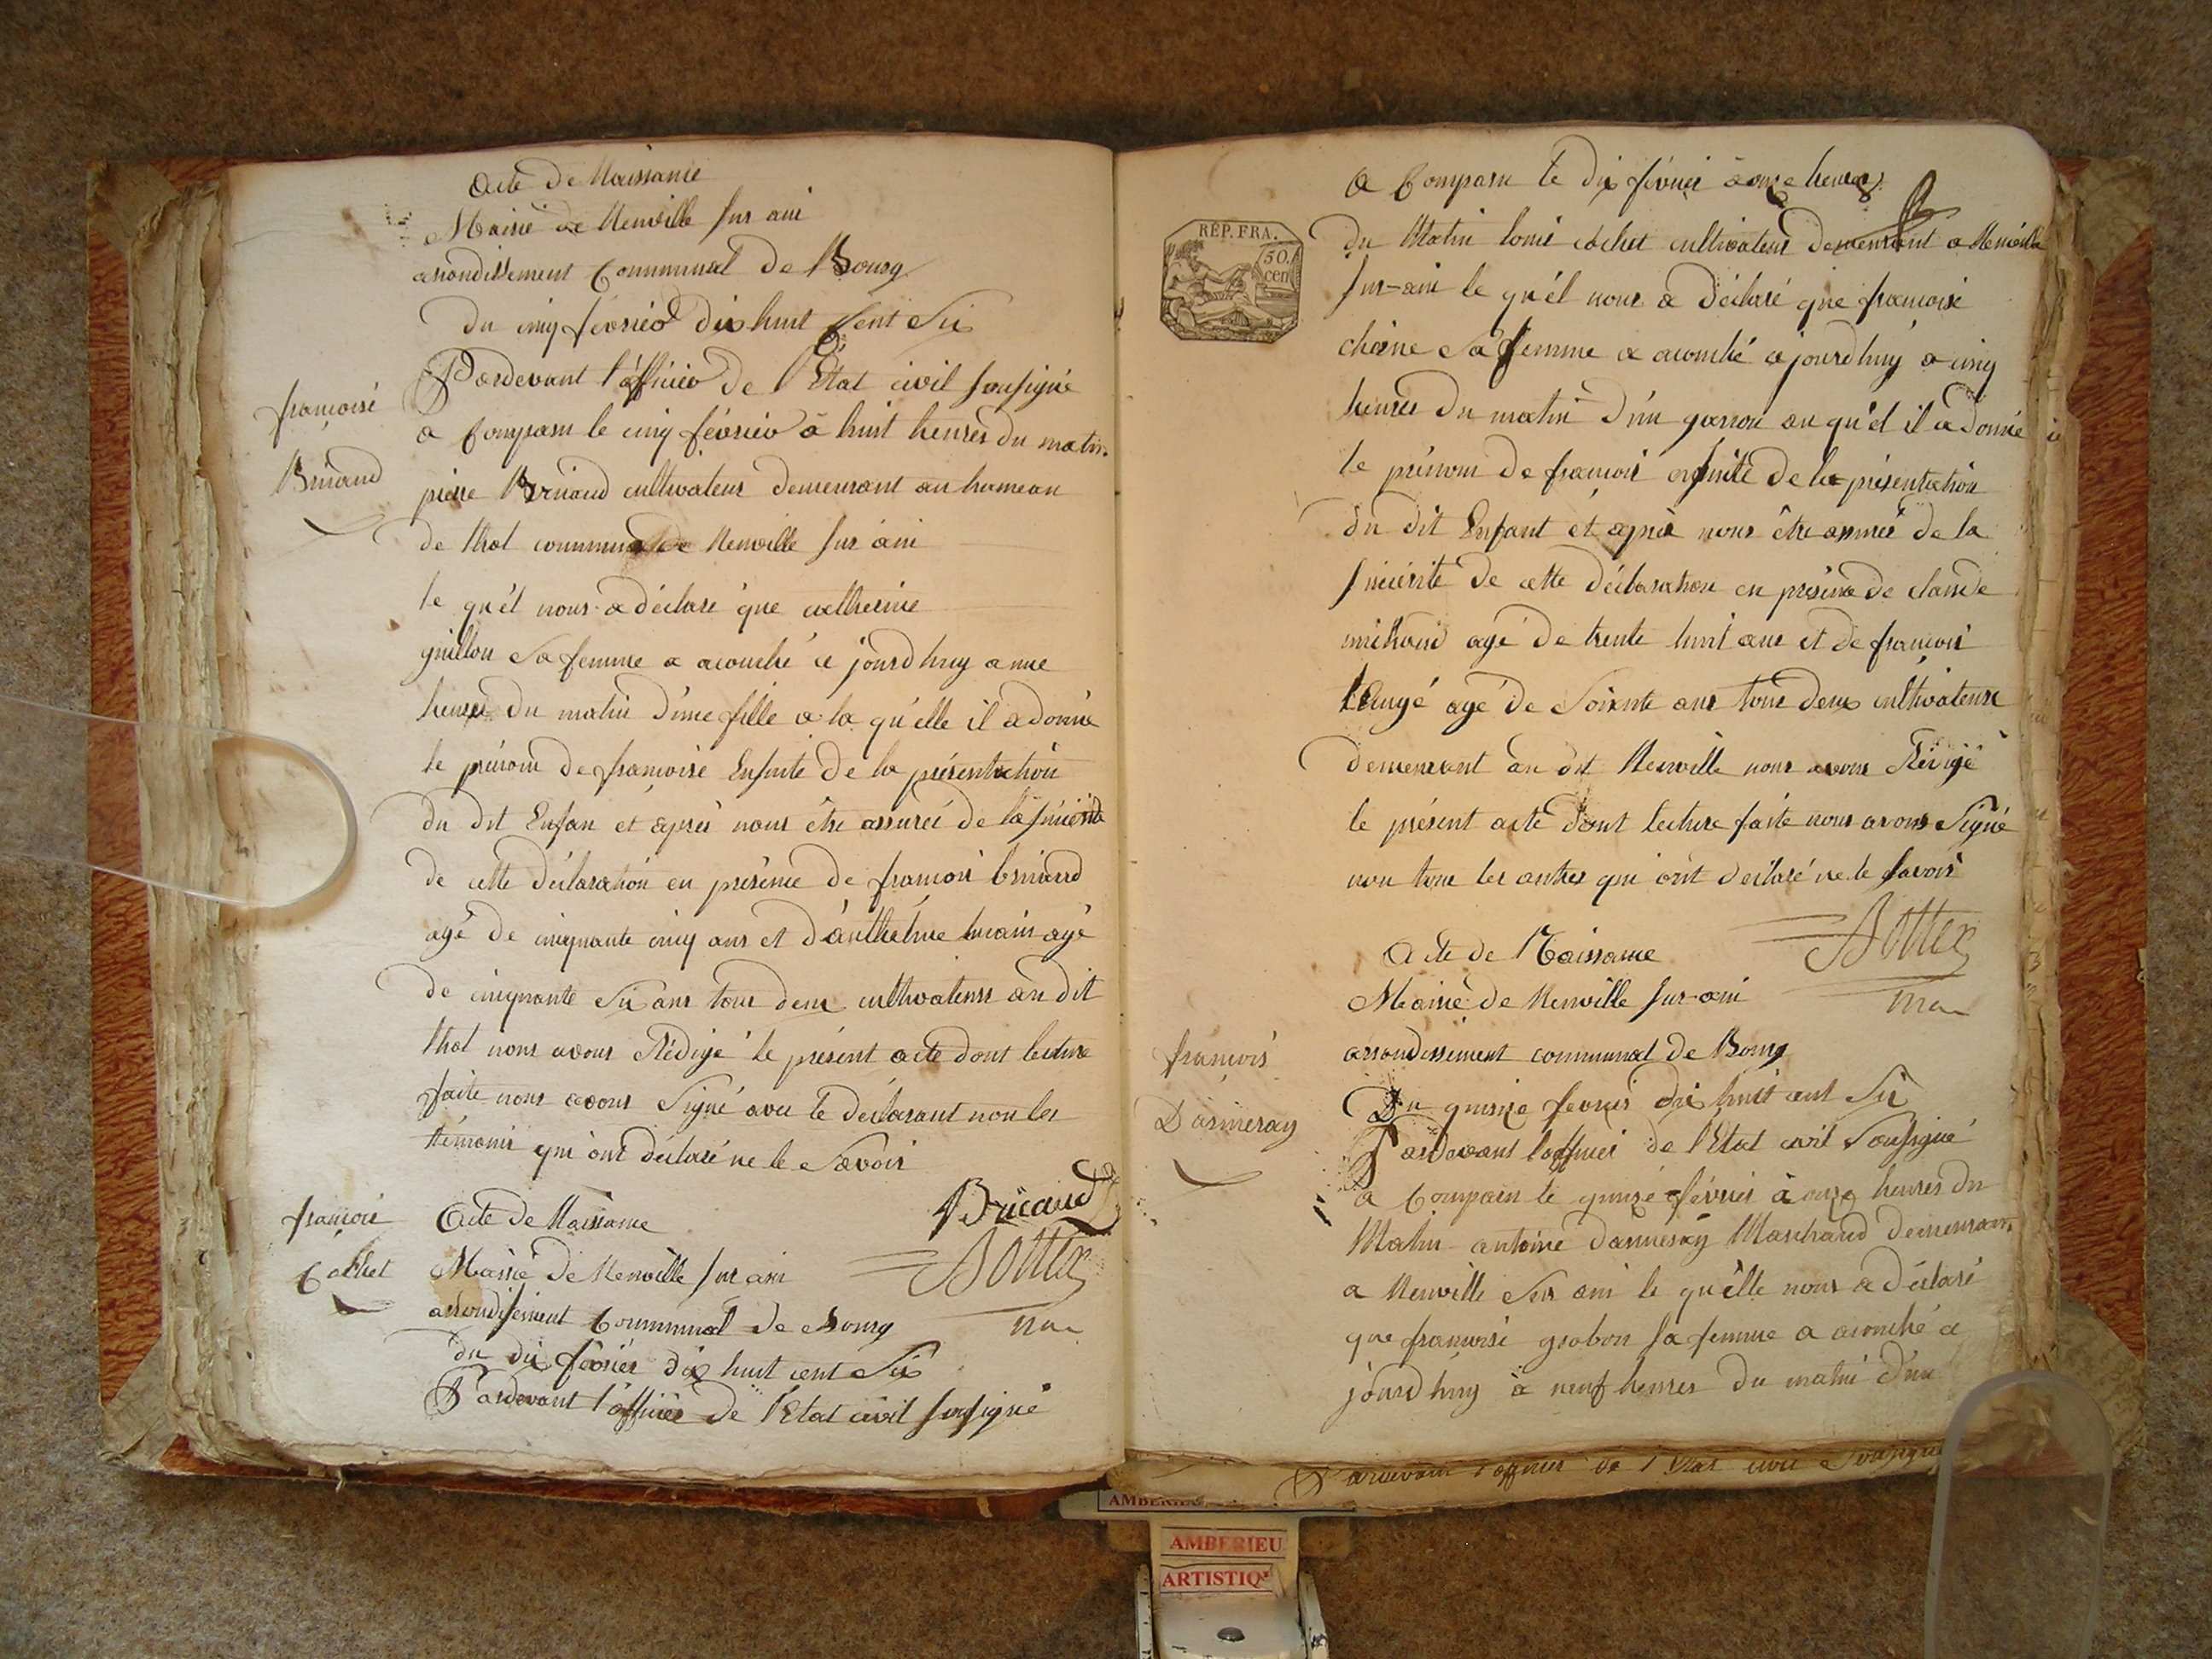 Acte de Naissance
Mairie de Neuville sur ain
arrondissement Communal de Bourg
du cinq février dix huit Cent Six
Pardevant l'officier de l'Etat civil soussigné
françoise
a Comparu le cinq février à huit heures du matin
Briaud
pierre Briaud cultivateur demeurant au hameau
de thol commune de Neuville sur ain
le qu'el nous a déclaré que catherine
guillon sa femme a acouché ce jourdhuy a une
heure du matin d'une fille a la qu'elle il a donné
le prénom de françoise Ensuite de la présentation
du dit Enfan et après nous être assuréé de la sincérité
de cette déclaration en présence de françois briaud
agé de cinquante cinq ans et d'anthelme agé
de cinquante Six ans tous deux cultivateurs au dit
thol nous avons Rédigé le présent acte dont lecture
faite nous avons Signé avec le déclarant non les
témoins qui ont déclaré ne le Savoir
Bricaud
françois
Acte de Naissance
Bottex
Cochet
Mairie de Neuville sur ain
arrondissement Communal de Bourg
du dix février dix huit cent Six
Pardevant l'officier de l'Etat civil soussigné
a Comparu le dix février à onze heures
RÉP. FRA.
50.
cen
du Matin louis cochet cultivateur demeurant a Neuville
sur-ain le qu'él nous a déclaré que francoise
chêne sa femme a acouché ajourdhuy a cinq
heures du matin d'un garson au qu'el il a donné
le prénom de françois ensuite de la présentation
du dit Enfant et après nous être assuréé de la
sincérité de cette déclaration en présence de claude
agé de trente huit ans et de françois
agé de Soixante ans tous deux cultivateurs
demeurant au dit Neuville nous avons Rédigé
le présent acte dont lecture faite nous avons Signé
non tous les autres qui ont déclaré ne le savoir
Bottex
Acte de Naissance
Mairie de Neuville sur-ain
françois
arrondissement communal de Bourg
Du quinze fevrier dix huit cent Six
Pardevant l'officier de l'Etat civil Soussigné
a Comparu le quinze février à onze heures du
Matin antoine Marchand demeurant
a Neuville Sur ain le qu'elle nous a déclaré
que francoise grobon sa femme a acouché ce
jourdhuy à neuf heures du matin d'un
Pardevant l'officier de l'Etat civil Soussigné
AMBERIEU
AMBERIEU
ARTISTIQ